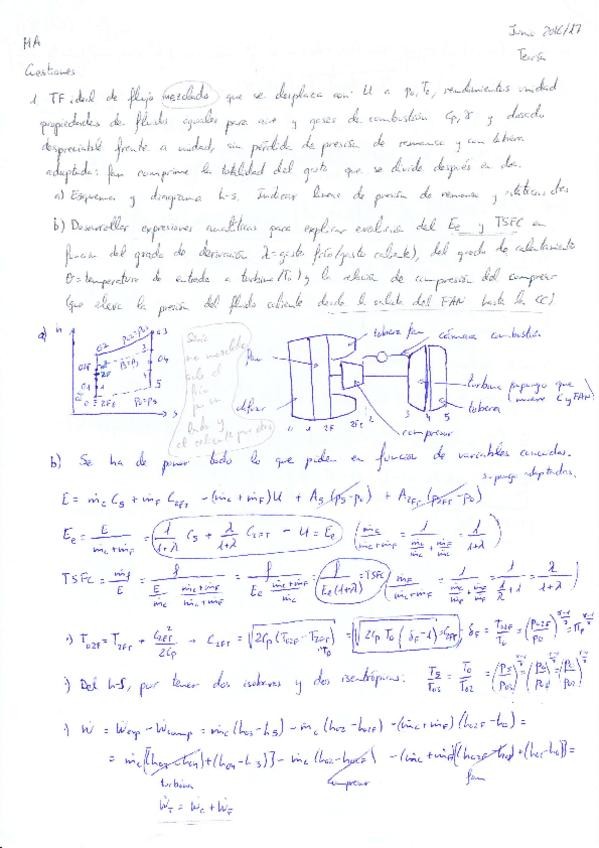 MA
Junio 2016/17
Teoría
Cuestiones
1 TF ideal de flujo mezclado que se desplaza con: U a p₀, T₀, rendimientos unidad
propiedades de fluidos iguales para aire y gases de combustión Cp, γ y dosado
despreciable frente a unidad, sin pérdida de presión de remanso y con tobera
adaptada: fan comprime la totalidad del gasto que se divide después en dos.
a) Esquema y diagrama h-s. Indicar líneas de presión de remanso y estáticas
b) Desarrollar expresiones analíticas para explicar evolución del Ee y TSFC en
función del grado de derivación λ=gasto frío/gasto caliente), del grado de calentamiento
θ=temperatura de entrada a turbina/T₀) y la relación de compresión del compresor
(que eleva la presión del fluido caliente desde la salida del FAN hasta la CC)
a) h
s
Sería
no mezclado
sale el
frío
por un
lado y
el caliente por otro
fan
difusor
tobera fan
cámara combustión
turbina
mueve C y FAN
tobera
compresor
0 1 2F 2 3 4 5
b) Se ha de poner todo lo que piden en función de variables conocidas.
supongo adaptadas.
E = ṁc C₅ + ṁF C2FT - (ṁc+ṁF)U + A₅(p₅-p₀) + A2FT(p2FT-p₀)
Ee = E/(ṁc+ṁF) = 1/(1+λ) C₅ + λ/(1+λ) C2FT - U = Ee
TSFC = ṁf/E = f/(Ee(1+λ)) = TSFC
·) T02F = T2FT + C2FT²/2Cp → C2FT = √(2Cp(T02F - T2FT)) = √(2Cp T₀(δF-1)) = C2FT ; δF = T02F/T₀ = (p02F/p₀)^((γ-1)/γ) = πF^((γ-1)/γ)
·) Del h-s, por tener dos isobaras y dos isentrópicas: T₅/T03 = T₀/T02 = (p₅/p03)^((γ-1)/γ) = (p₀/p02)^((γ-1)/γ)
·) Ẇ = Ẇexp - Ẇcomp = ṁc(h03-h5) - ṁc(h02-h02F) - (ṁc+ṁF)(h02F-h0) =
= ṁc[(h03-h04)+(h04-h5)] - ṁc(h02-h02F) - (ṁc+ṁF)[(h02F-h01)+(h01-h0)] =
turbina
compresor
fan
ẆT = Ẇc + ẆF